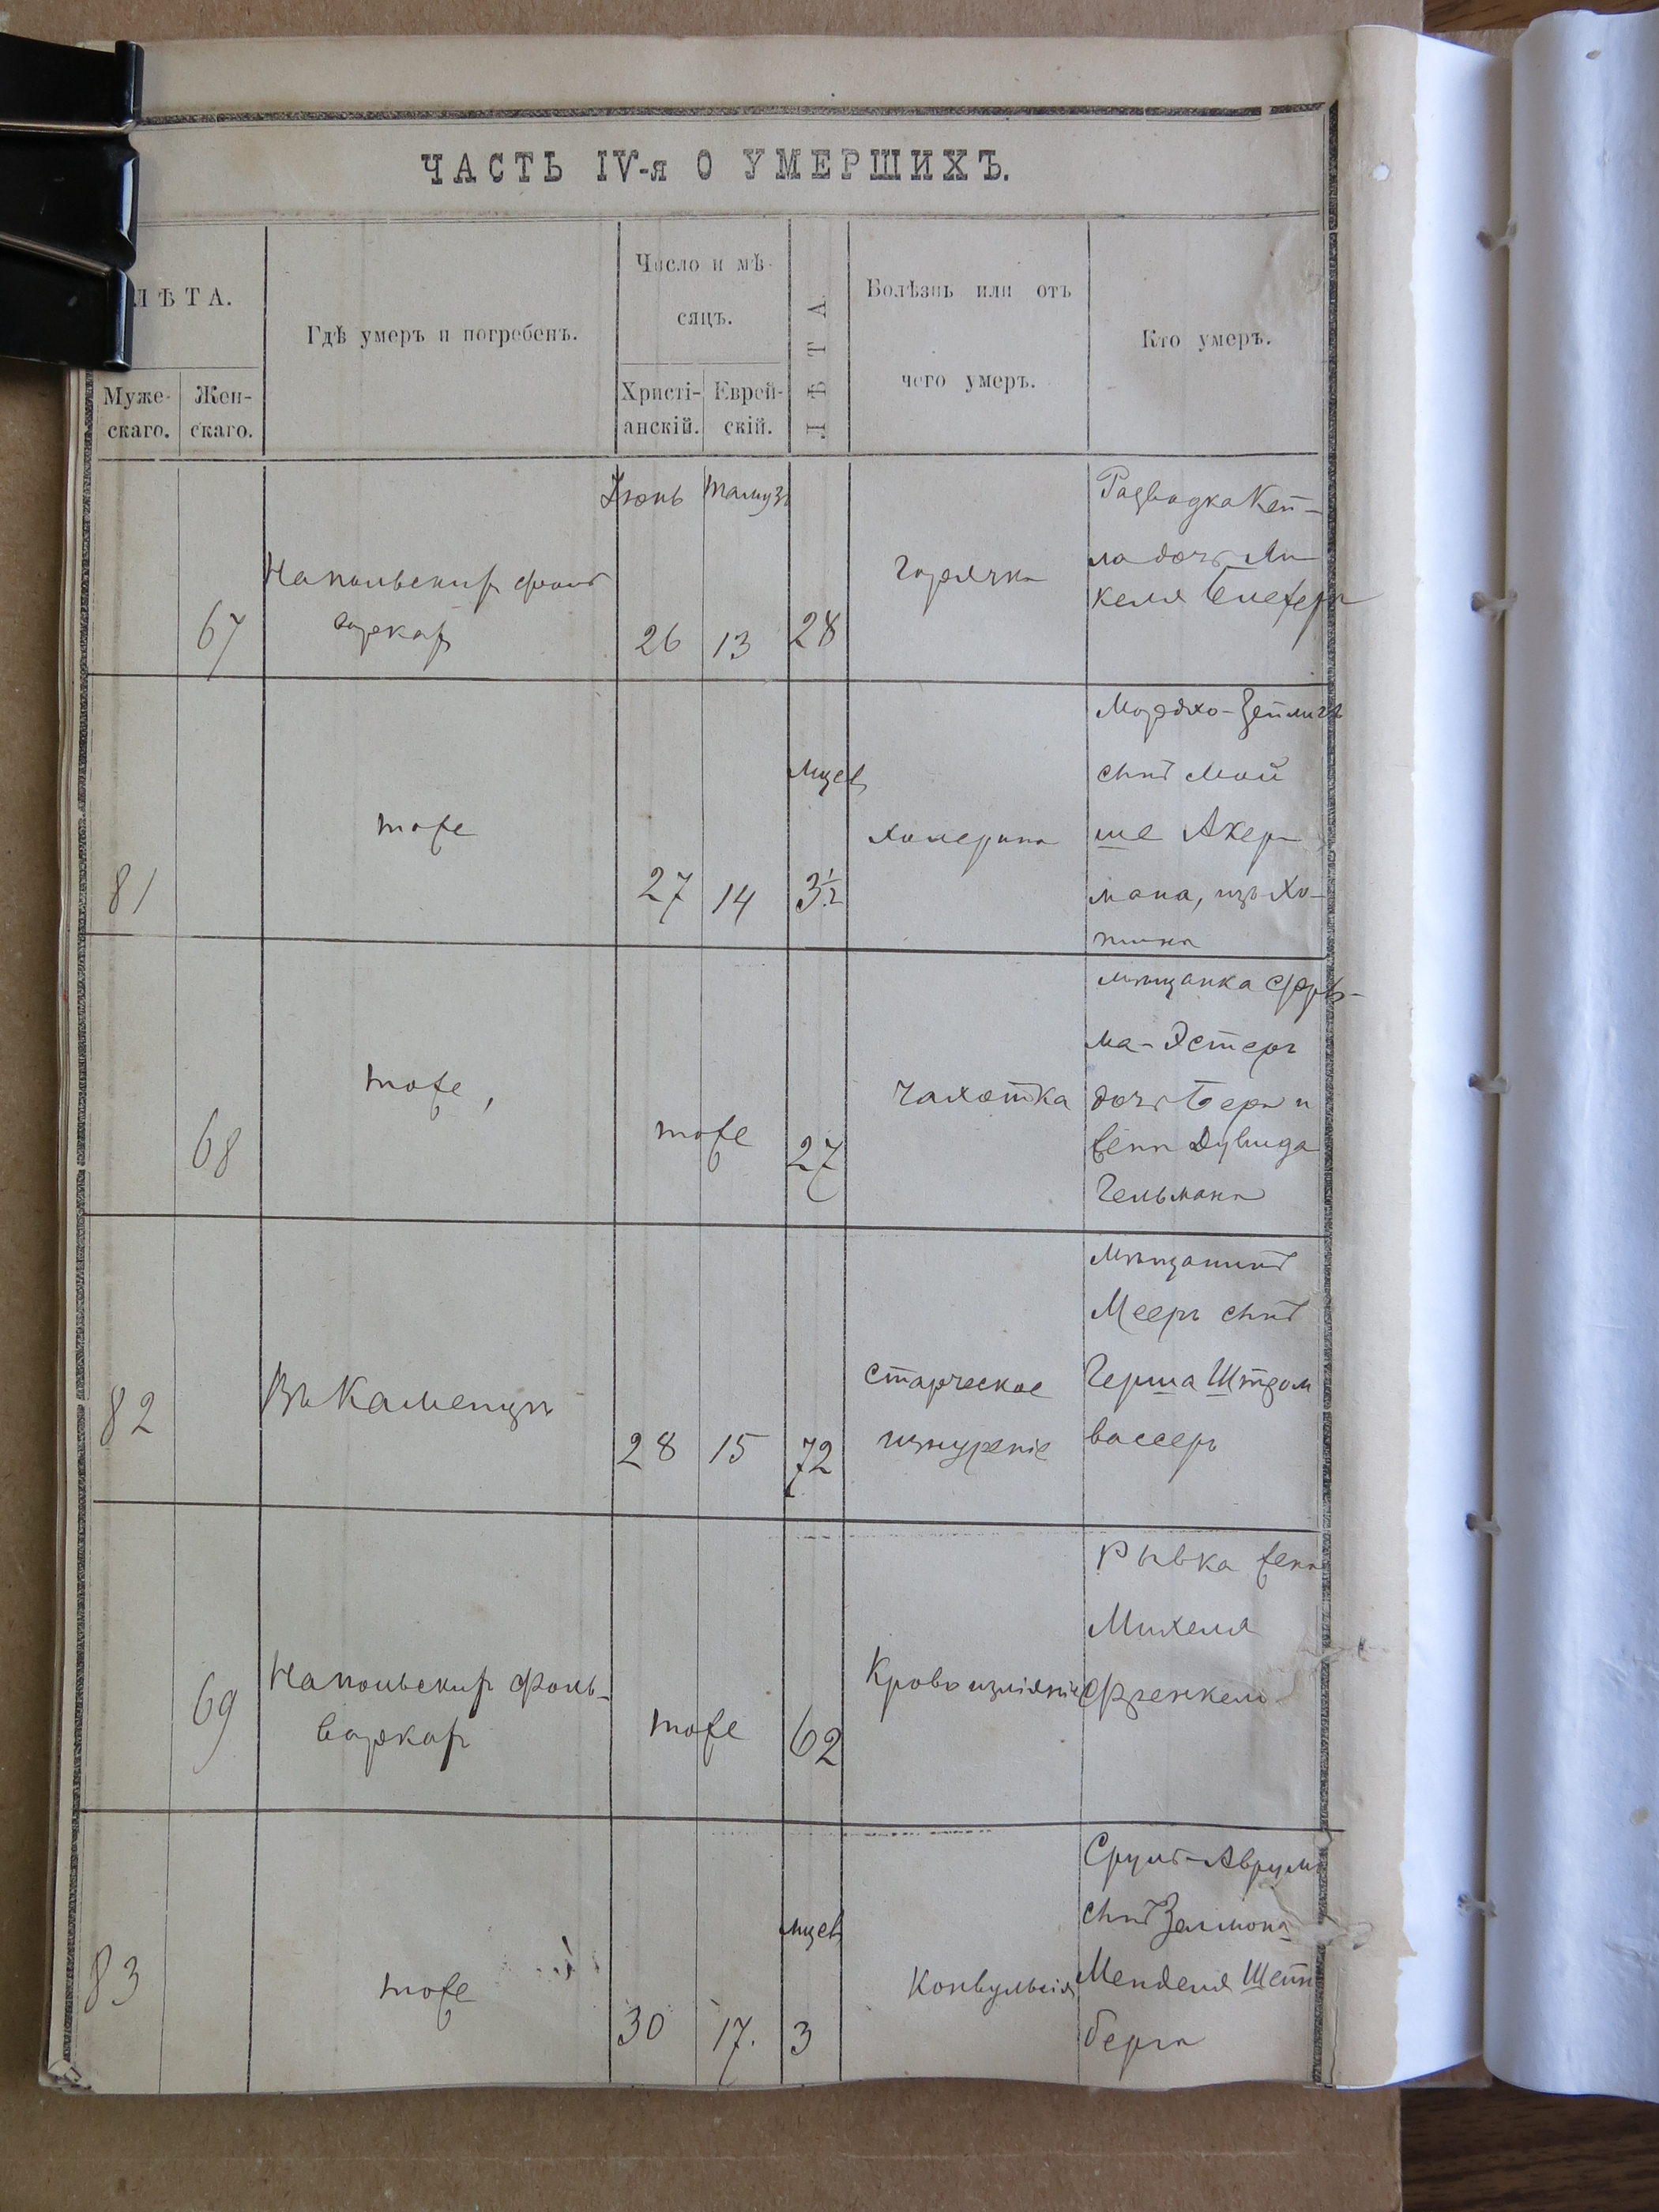 ЧАСТЬ IV-я О УМЕРШИХЪ.
ЛѢТА.
Муже-
скаго.
Жен-
скаго.
Гдѣ умеръ и погребенъ.
Число и мѣ-
сяцъ.
Христі-
анскій.
Еврей-
скій.
ЛѢТА
Болѣзнь или отъ
чего умеръ.
Кто умеръ.
Іюнь Тамузъ
67
26 13 28
Горячка
Разводка Кей-
ла дочь
81
тоже
27 14
мцев
3½
холерина
Мордхо-Зейлигъ
сынъ Мой
ше Акер
мана, изъ Хо-
тина
68
тоже,
тоже
27
Чахотка
мѣщанка Фру-
ма-Эстеръ
дочь Бера и
жена Дувида
Гельмана
82
Въ Каменцѣ
28 15 72
старческое
изнуреніе
Мѣщанинъ
Мееръ сынъ
Герша
вассеръ
69
На польских фоль-
варках
тоже
62
Кровоизліяніе
Рывка жена
Михеля
Френкель
83
тоже
30 17.
мцев
3
Конвульсія
Сруль-Аврумъ
сынъ Залмона
Менделя Шейн
берга